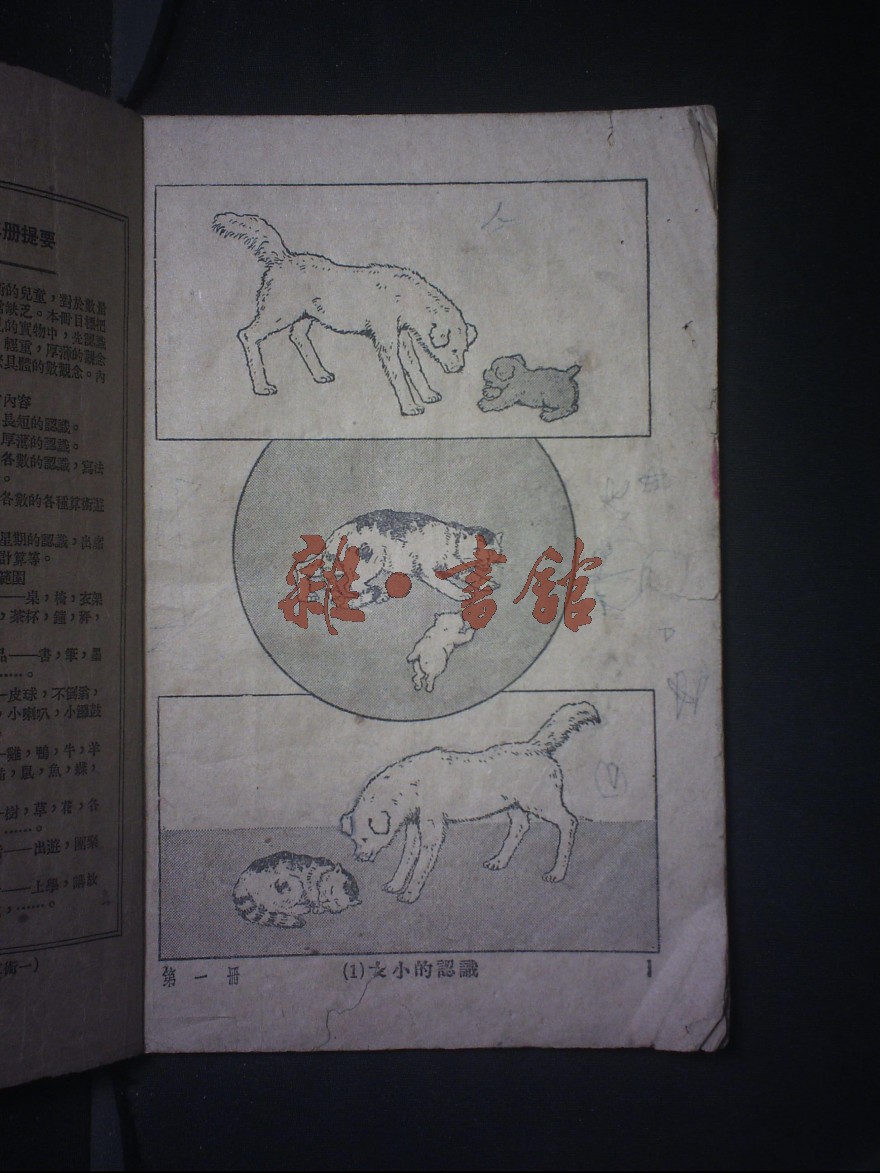 册提要
的兒童，對於數量
缺乏。本冊目標把
的實物中，去認識
輕重，厚薄的觀念
具體的數觀念。內
內容
長短的認識。
厚薄的認識。
各數的認識，寫法
。
各數的各種算術
星期的認識，出席
計算等。
範圍
——桌，椅，衣架
，茶杯，鐘，秤，
品——書，筆，墨
……。
—皮球，不倒翁，
，小喇叭，小鑼鼓
—雞，鴨，牛，羊
貓，鼠，魚，蝶，
—樹，草，花，各
……。
——出遊，團聚
——上學，講故
，……。
術一)
雜·書館
D
第一册
(1)大小的認識
1